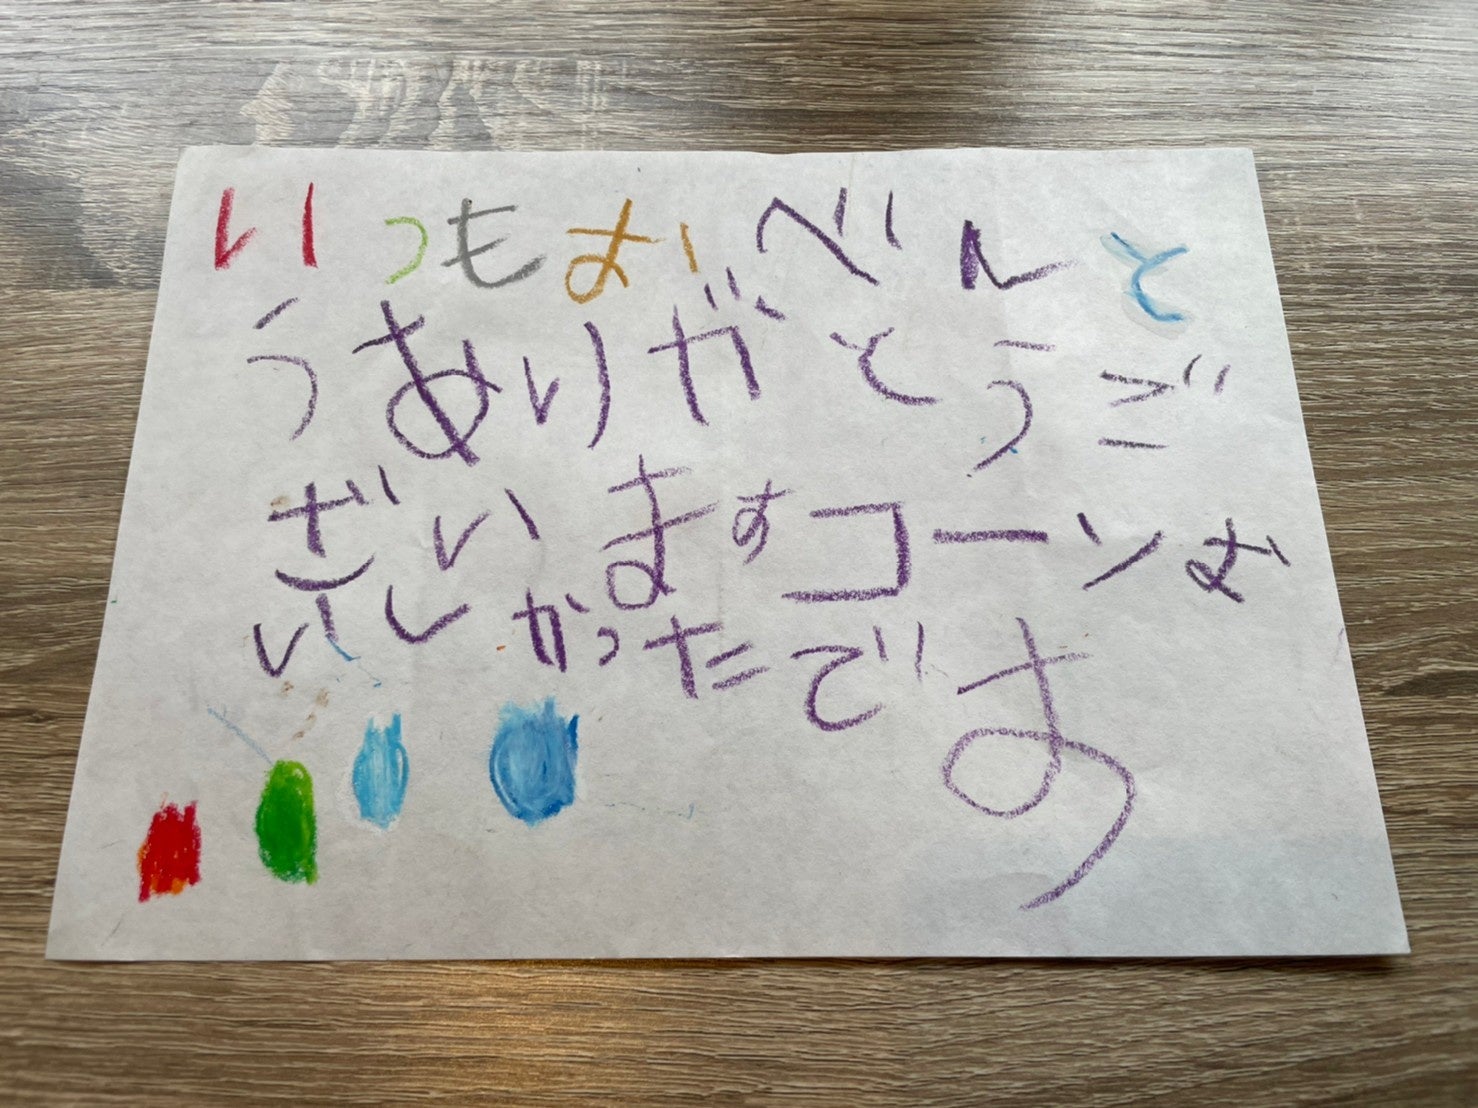 いつもおべんと
うありがとうご
ざいますコーンお
いしかったです